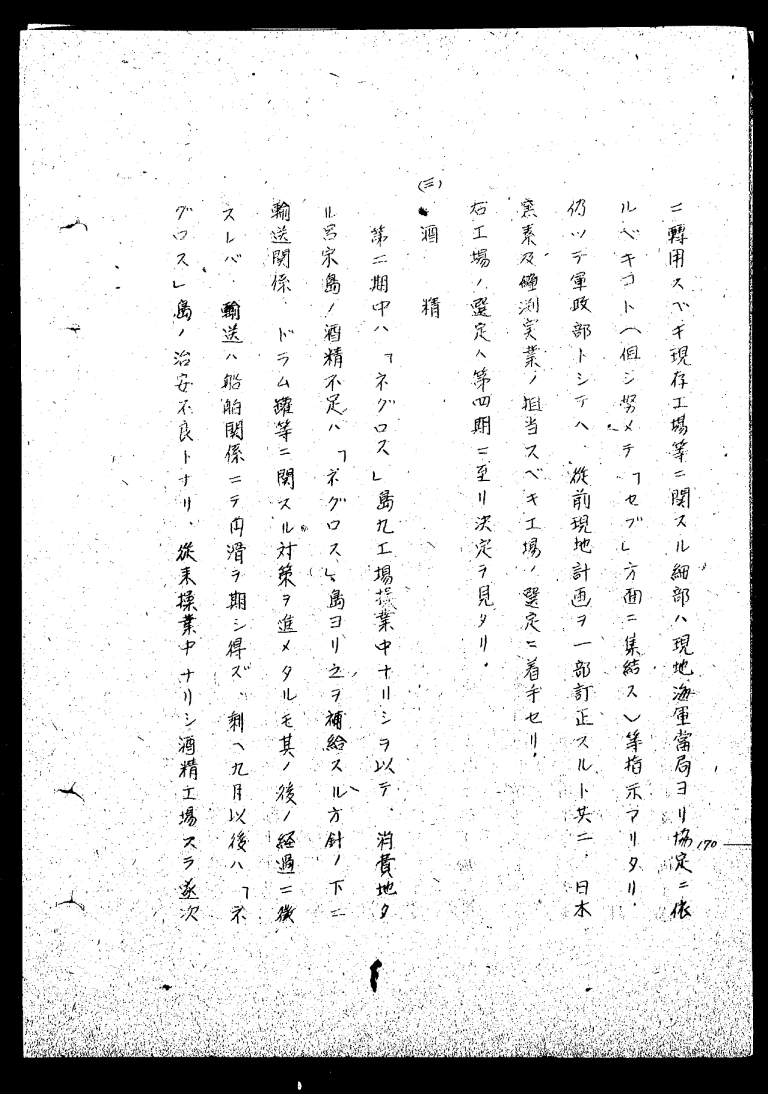 ニ轉用スベキ現存工場等ニ関スル細部ハ現地海軍當局ヨリ協定ニ依
ルベキコト(但シ努メテ「セブ」方面ニ集結ス)等指示アリタリ、
仍ツテ軍政部トシテハ、従前現地計画ヲ一部訂正スルト共ニ、日本
窒素及鐘渕実業ノ担当スベキ工場ノ選定ニ着手セリ、
右工場ノ選定ハ第四期ニ至リ決定ヲ見タリ、
(三) 酒精
第二期中ハ「ネグロス」島九工場操業中ナリシヲ以テ、消費地タ
ル呂宋島ノ酒精不足ハ「ネグロス」島ヨリ之ヲ補給スル方針ノ下ニ
輸送関係、ドラム罐等ニ関スル対策ヲ進メタルモ其ノ後ノ経過ニ徴
スレバ、輸送ハ船舶関係ニテ円滑ヲ期シ得ズ、剰ヘ九月以後ハ「ネ
グロス」島ノ治安不良トナリ、従来操業中ナリシ酒精工場スラ逐次
170